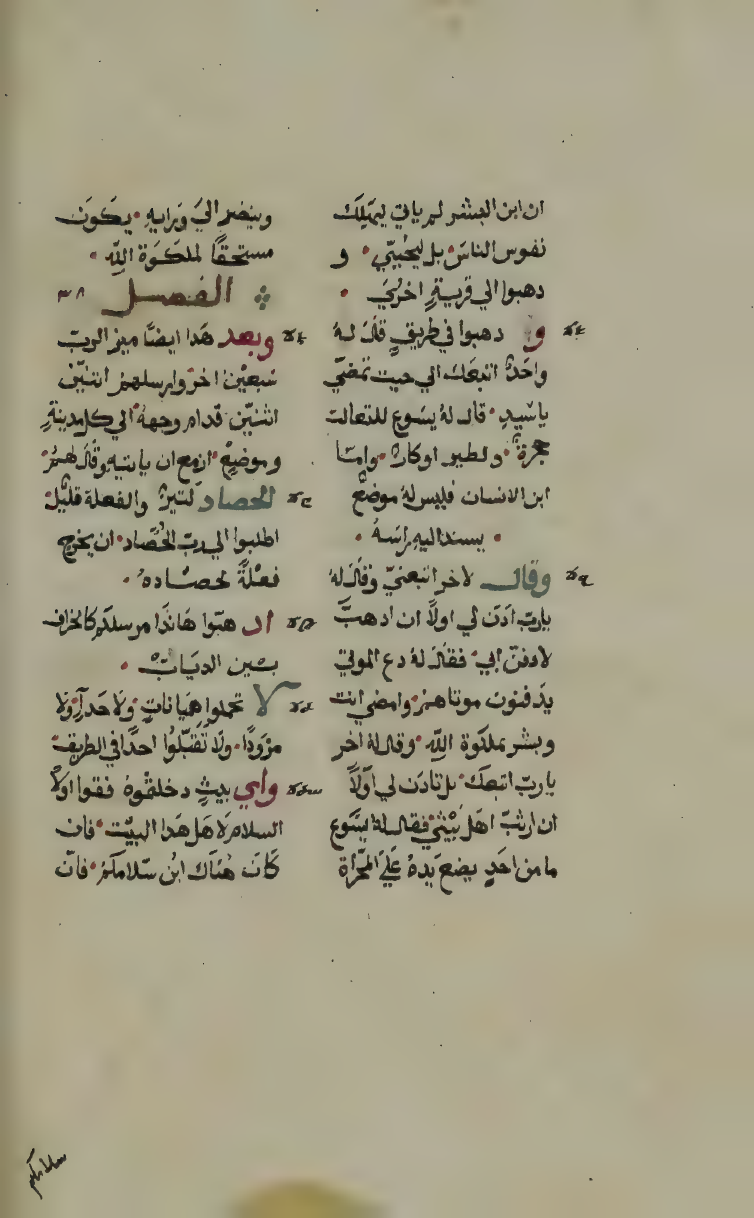 ان ابن البشر لم ياتي ليهلك
نفوس الناس بل ليحيي و
دهبوا الي قرية اخري
و دهبوا في طريق قال له
واحد اتبعك الي حيت تمضي
ياسيد قال له يسوع للتعالب
حجرة ولطير اوكار واما
ابن الانسان فليس له موضع
يسند اليه راسه
وقال لاخر اتبعني فقال له
يارب ادن لي اولا ان ادهب
لادفن ابي فقال له دع الموتي
يدفنون موتاهم وامضي انت
وبشر بملكوة الله وقال له اخر
يارب اتبعك بل تادن لي اولا
ان ارتب اهل بيتي فقال له يسوع
ما من احد يضع يده علي المحراة
وينضر الي ورايه يكون
مستحقا لملكوة الله
الفصل ٣٨
وبعد هدا ايضا ميز الرب
سبعين اخر وارسلهم اتنين
اتنين قدام وجهه الي كل مدينة
وموضع ازمع ان ياتيه وقال لهم
الحصاد كتير والفعلة قليل
اطلبوا الي رب الحصاد ان يخرج
فعلة لحصاده
ادهبوا هاندا مرسلكم كالخراف
بين الدياب
لا تحملوا هميانات ولا حدآ ولا
مزودا ولا تقبلوا احدا في الطريق
واي بيت دخلتموه فقولوا اولا
السلام لاهل هدا البيت فان
كان هناك ابن سلامكم فان
سلامكم